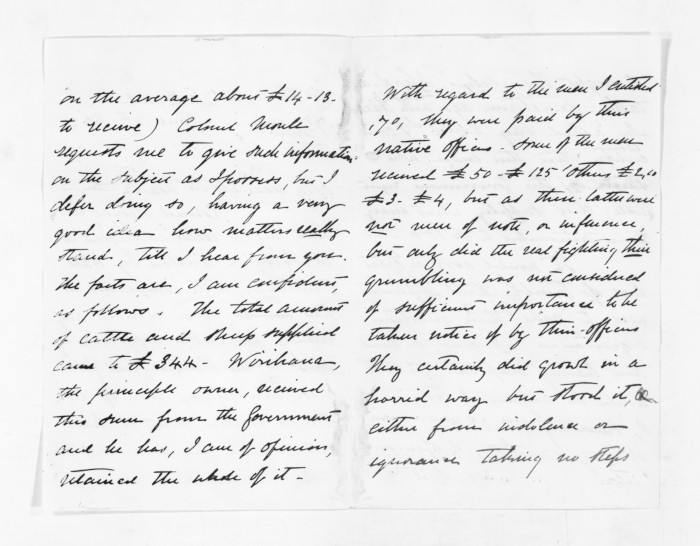 on the average about £14-13-
to receive) Colonel Moule
requests me to give such information
on the subject as I possess, but I
defer doing so, having a very
good idea how matters really
stand, till I hear from you.
The facts are, I am confident,
as follows. The total amount
of cattle and sheep supplied
came to £344- Wirihana,
the principle owner, received
this sum from the Government
and he has, I am of opinion,
retained the whole of it-
With regard to the men I enlisted
,70, they were paid by their
native officers- some of the men
received £50-£125 others £2,10
£3-£4, but as these latter were
not men of note, or influence,
but only did the real fighting their
grumbling was not considered
of sufficient importance to be
taken notice of by their officers
They certainly did growl in a
horrid way but stood it,
either from indolence or
ignorance taking no steps